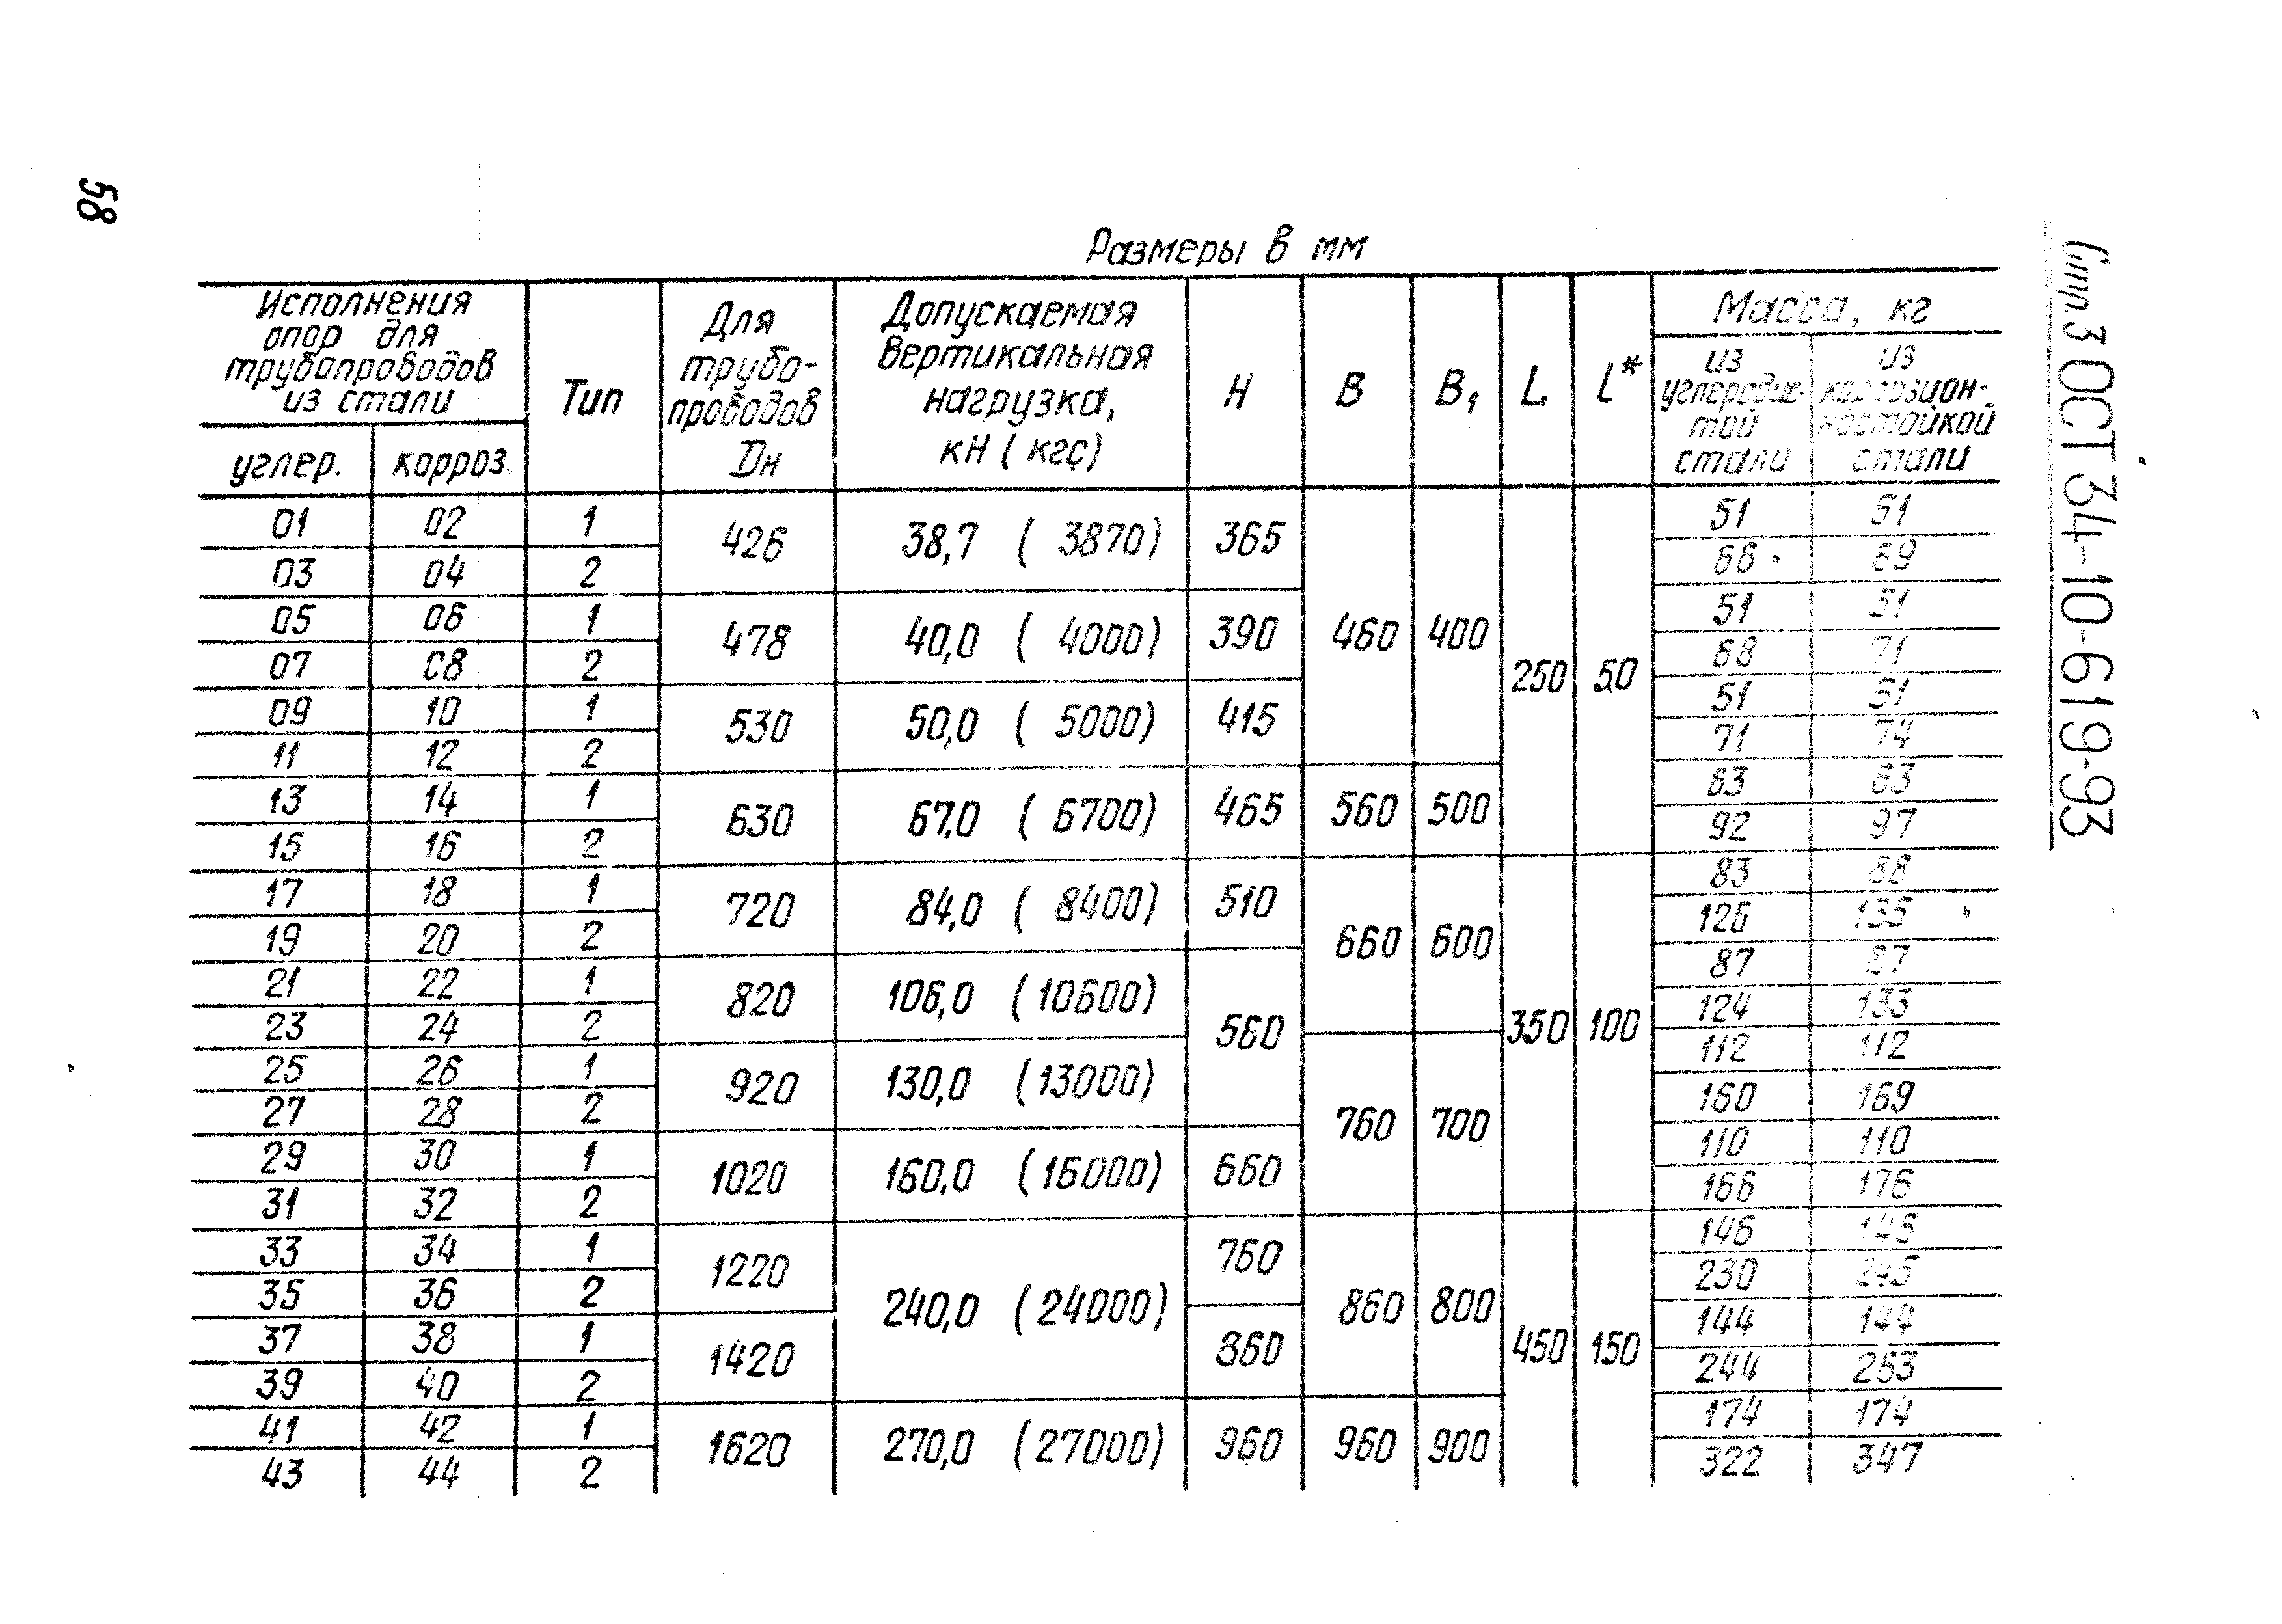 58
Стр. 3 ОСТ 34-10-619-93
Размеры в мм
Исполнения опор для трубопроводов из стали | Тип | Для трубо-проводов Dн | Допускаемая вертикальная нагрузка, кН (кгс) | H | B | B₁ | L | l* | Масса, кг
углер. | корроз. | из углеродис-той стали | из коррозион-ностойкой стали
01 02 1 426 38,7 (3870) 365 460 400 250 50 51 51
03 04 2 69
05 06 1 478 40,0 (4000) 390 51 51
07 08 2 68 71
09 10 1 530 50,0 (5000) 415 51 51
11 12 2 71 74
13 14 1 630 67,0 (6700) 465 560 500 63 63
15 16 2 92 97
17 18 1 720 84,0 (8400) 510 660 600 350 100 83
19 20 2 126 135
21 22 1 820 106,0 (10600) 560 87 87
23 24 2 124 133
25 26 1 920 130,0 (13000) 760 700 112 112
27 28 2 160 169
29 30 1 1020 160,0 (16000) 660 110 110
31 32 2 166 176
33 34 1 1220 240,0 (24000) 760 860 800 450 150 146 146
35 36 2 230 245
37 38 1 1420 860 144 144
39 40 2 244 263
41 42 1 1620 270,0 (27000) 960 960 900 174 174
43 44 2 322 347